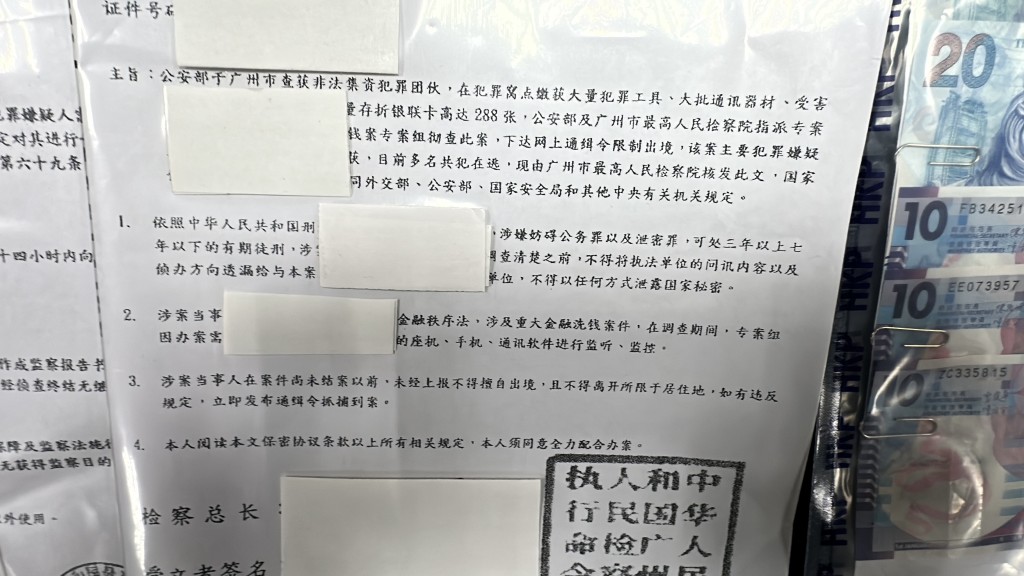 证件号码
主旨：公安部于广州市查获非法集资犯罪团伙，在犯罪窝点缴获大量犯罪工具、大批通讯器材、受害
量存折银联卡高达 288 张，公安部及广州市最高人民检察院指派专案
钱案专案组彻查此案，下达网上通缉令限制出境，该案主要犯罪嫌疑
获，目前多名共犯在逃，现由广州市最高人民检察院核发此文，国家
同外交部、公安部、国家安全局和其他中央有关机关规定。
1. 依照中华人民共和国刑 ，涉嫌妨碍公务罪以及泄密罪，可处三年以上七
年以下的有期徒刑，涉 调查清楚之前，不得将执法单位的问讯内容以及
侦办方向透漏给与本案 单位，不得以任何方式泄露国家秘密。
2. 涉案当事 金融秩序法，涉及重大金融洗钱案件，在调查期间，专案组
因办案需 的座机、手机、通讯软件进行监听、监控。
3. 涉案当事人在案件尚未结案以前，未经上报不得擅自出境，且不得离开所限于居住地，如有违反
规定，立即发布通缉令抓捕到案。
4. 本人阅读本文保密协议条款以上所有相关规定，本人须同意全力配合办案。
检察总长：
受文者签名
执人和中
行民国华
命检广人
令察州民
犯罪嫌疑人
定对其进行
第六十九条
十四小时内向
作成监察报告书
经侦查终结无继
障及监察法施行
无获得监察目的
外使用。
HKP
HKP
HKP
HKP
20
10
FB34251
10
EE073957
10
ZC335815